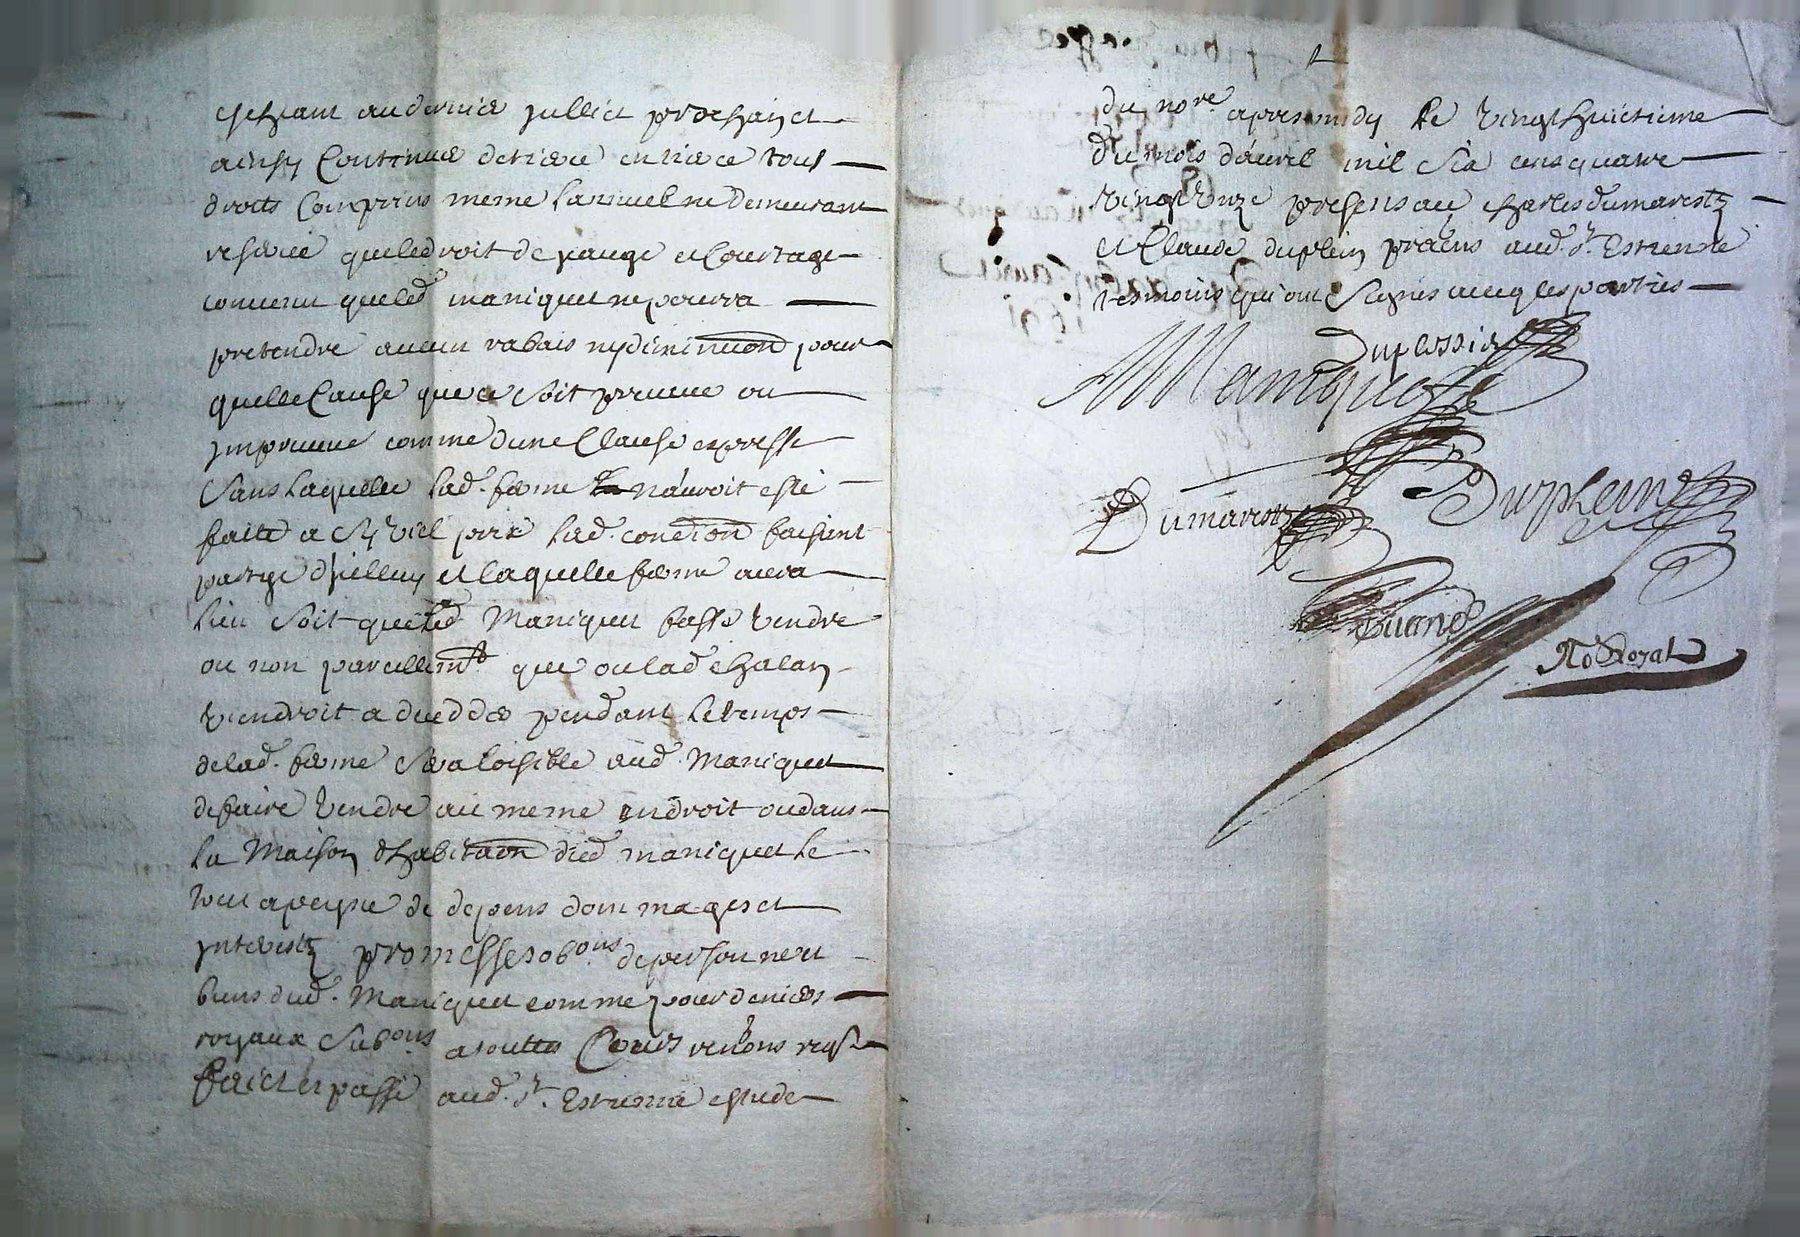 escheant au dernier juillet prochain et
ainsy continuer de tiere en tiere tous
droits compris meme lannuel ne demeurant
reservé que le droit de jauge et courtage
convenu que led maniquet ne poura
pretendre aucun rabais ny diminuon pour
quelle cause que ce soit preveue ou
jmpreveue comme dune clause expresse
sans laquelle lad. ferme nauroit esté
faitte a sy viel prix lad. condion faisant
partye dicelluy et laquelle ferme aura
lieu soit que led Maniquet fasse vendre
ou non pareillemt que ou lad chalan
viendroit a deceder pendant le temps
de lad. ferme sera loisible aud. Maniquet
de faire vendre au meme endroit ou dans
la Maison dhabitaon dud maniquet le
tout a peyne de depens dommages et
jnterestz promesses obons de personne et
biens dud. Maniquet comme pour deniers
royaux subons a touttes Cours renons
faict et passé aud. St. Estienne estude
du nore apres midy le vingt huictieme
du mois davril mil six cens quatre
vingt unze presens au charles dumarestz
et Claude duplein praens aud. St. Estienne
tesmoins qui ont signés avecq les parties
Duplessis
Maniquet
Duplein
Dumarestz
No Royal